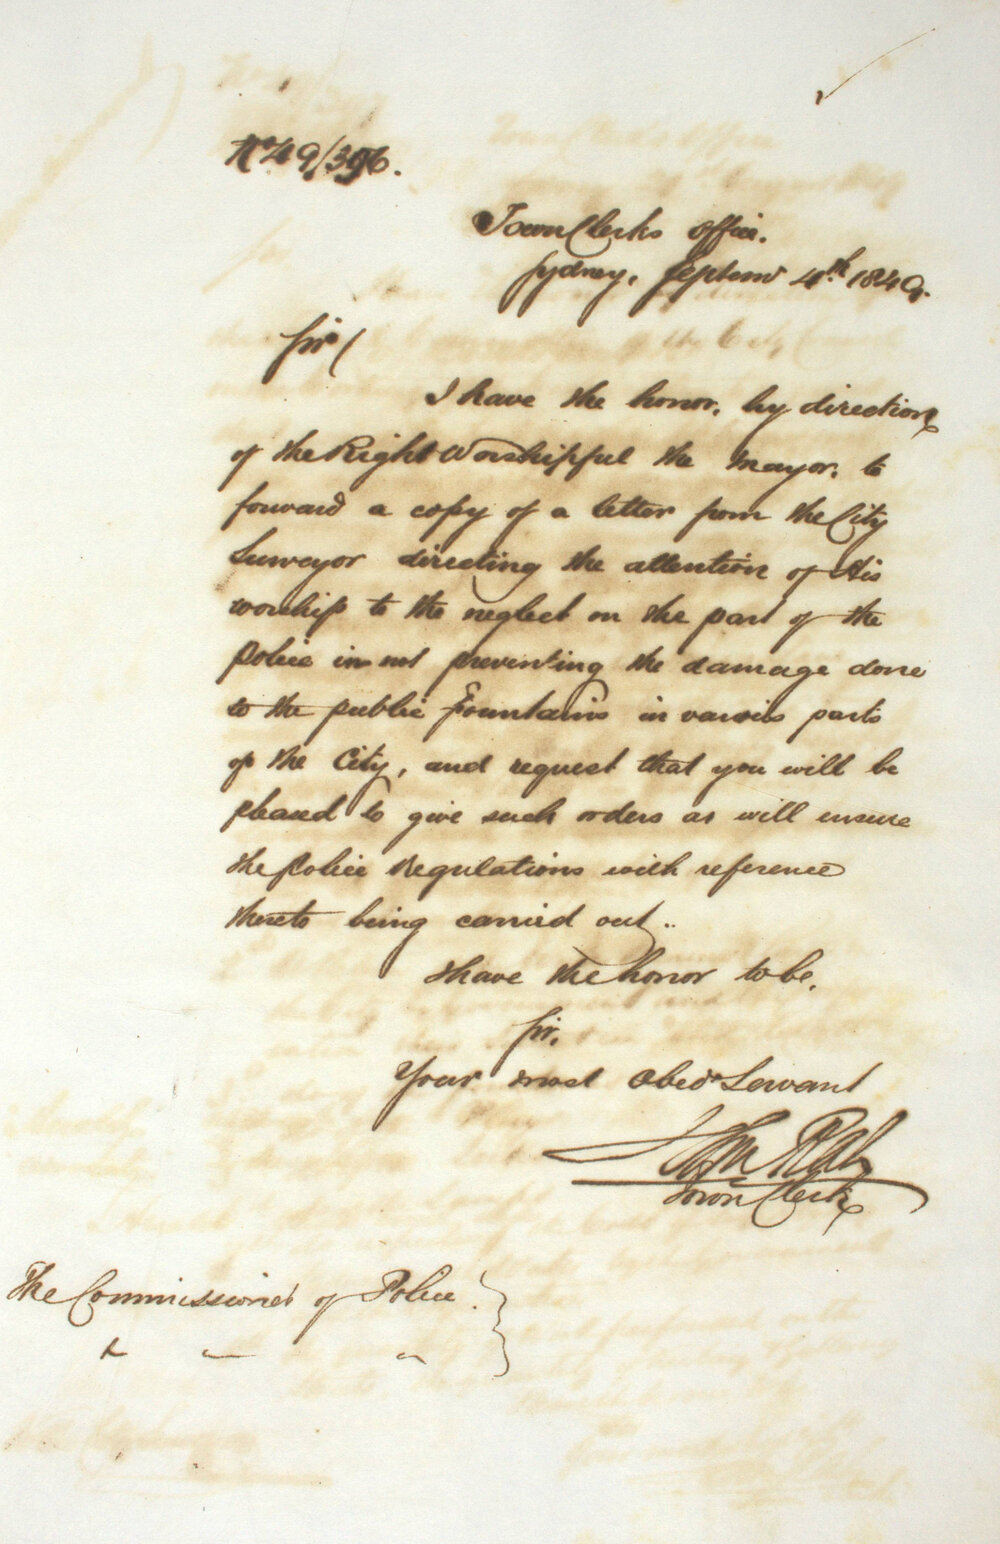 No 49/396.
Town Clerks Office.
Sydney, Septemr 4th 1849.
Sir
I have the honor, by direction
of the Right Worshipful the Mayor, to
forward a copy of a letter from the City
Surveyor directing the attention of His
worship to the neglect on the part of the
Police in not preventing the damage done
to the public Fountains in various parts
of the City, and request that you will be
pleased to give such orders as will ensure
the Police Regulations with reference
thereto being carried out..
I have the honor to be,
Sir,
Your most Obedt Servant
John Rae
Town Clerk
The Commissioner of Police.